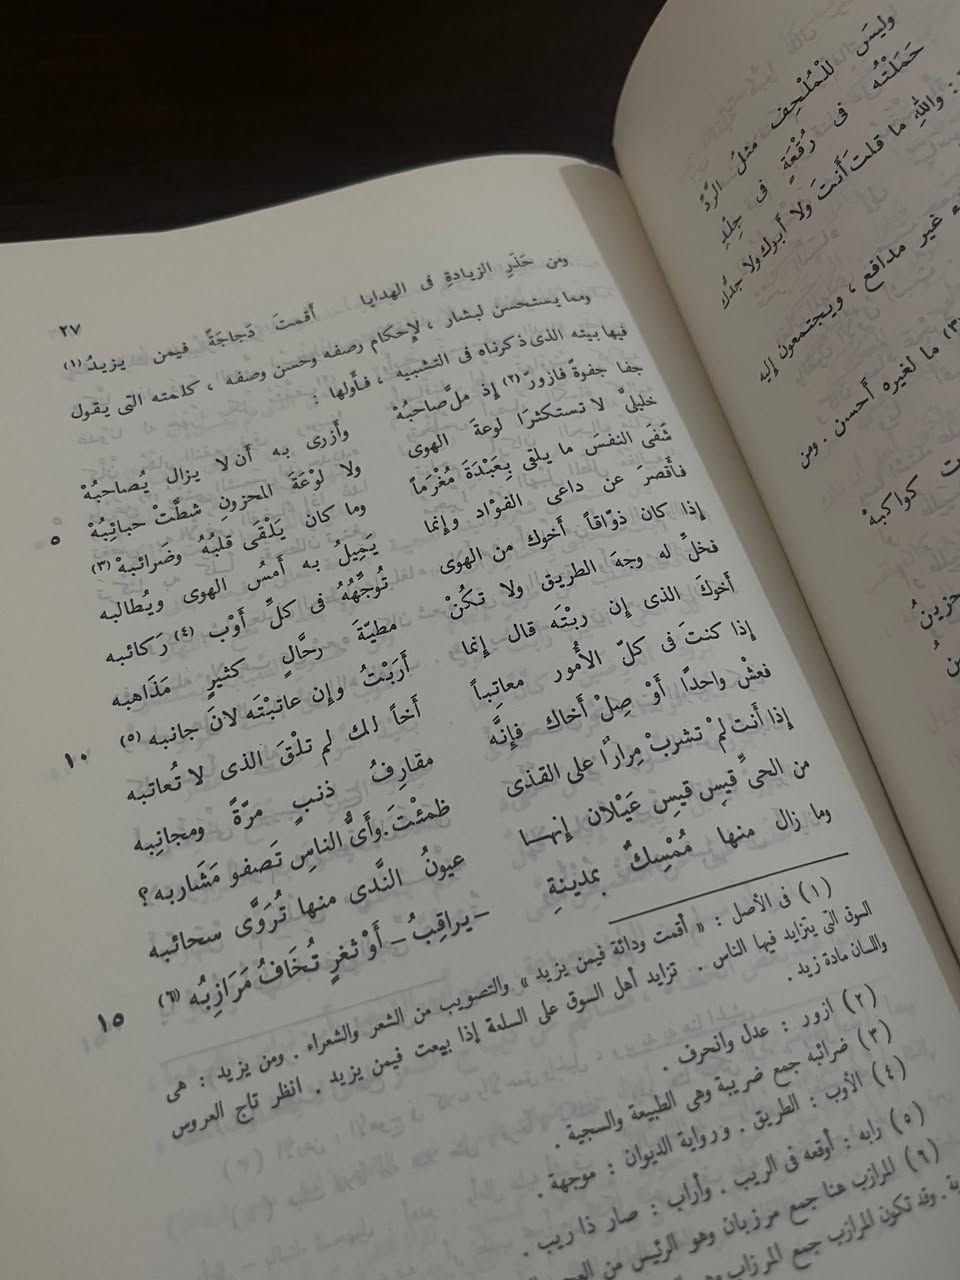 وليسَ للْمُلْحِفِ مثلُ الرَّدِّ
حَمَلْتُه فى رُقْعَةٍ فى جِلْدِ
: واللهِ ما قلتَ أنتَ ولا أبوك ولا جدُّك
غير مدافع ، ويجتمعون إليه
(٣) ما لغيره أحسن . ومن
كواكبهْ
٢٧
ومن حَذَرِ الزيادةِ فى الهدايا أقمتَ دَجاجَةً فيمن يزيدُ (١)
ومما يستحسن لبشار ، لإحكام رصفه وحسن وصفه ، كلمته التى يقول
فيها بيته الذى ذكرناه فى التشبيه ، فأولها :
جفا جفوةً فازورّ (٢) إذ ملّ صاحبُهْ وأزرى به أن لا يزال يُصاحبُهْ
خليلىَّ لا تستكثرَا لوعةَ الهوى ولا لوْعَةَ المحزونِ شطَّتْ حبائِبُهْ
٥
شَفَى النفسَ ما يلقى بِعَبْدَةَ مُغْرَماً وما كان يَلْقَى قلبُهُ وضَرائبهْ (٣)
فأقصرَ عن داعى الفؤاد وإنما يَمِيلُ به أمسُ الهوى ويُطالبه
إذا كان ذوّاقاً أخوك من الهوى تُوجِّهُهُ فى كلِّ أوْب (٤) رَكائبه
فخلِّ له وجهَ الطريق ولا تكُنْ مطيّةَ رحَّالٍ كثيرٍ مَذَاهبه
أخوكَ الذى إن ربْتَه قال إنما أرَبْتُ وإن عاتبْتَه لانَ جانبه (٥)
١٠
إذا كنتَ فى كلّ الأُمور معاتِباً أخاً لك لم تلْقَ الذى لا تُعاتبه
فعشْ واحدًا أوْ صِلْ أخاك فإنَّه مقارِفُ ذنبٍ مرّةً ومجانِبه
إذا أنت لمْ تشربْ مِرارًا على القذى ظمئْتَ وأىُّ الناسِ تَصفو مَشَاربه ؟
من الحىّ قيسِ قيسِ عَيْلان إنها عيونُ النَّدى منها تُرَوَّى سحائبه
وما زال منها مُمْسِكٌ بمدينةٍ - يراقِبُ - أوْ ثغرٍ تُخَافُ مَرَازِبُه (٦)
١٥
(١) فى الأصل : « أقمت ودائة فيمن يزيد » والتصويب من الشعر والشعراء . ومن يزيد : هى
السوق التى يتزايد فيها الناس . تزايد أهل السوق على السلعة إذا بيعت فيمن يزيد . انظر تاج العروس
واللسان مادة زيد .
(٢) ازور : عدل وانحرف .
(٣) ضرائبه جمع ضريبة وهى الطبيعة والسجية .
(٤) الأوب : الطريق . ورواية الديوان : موجهة .
(٥) رابه : أوقعه فى الريب . وأراب : صار ذا ريب .
(٦) المرازب هنا جمع مرزبان وهو الرئيس من
وقد تكون المرازب جمع المرزاب